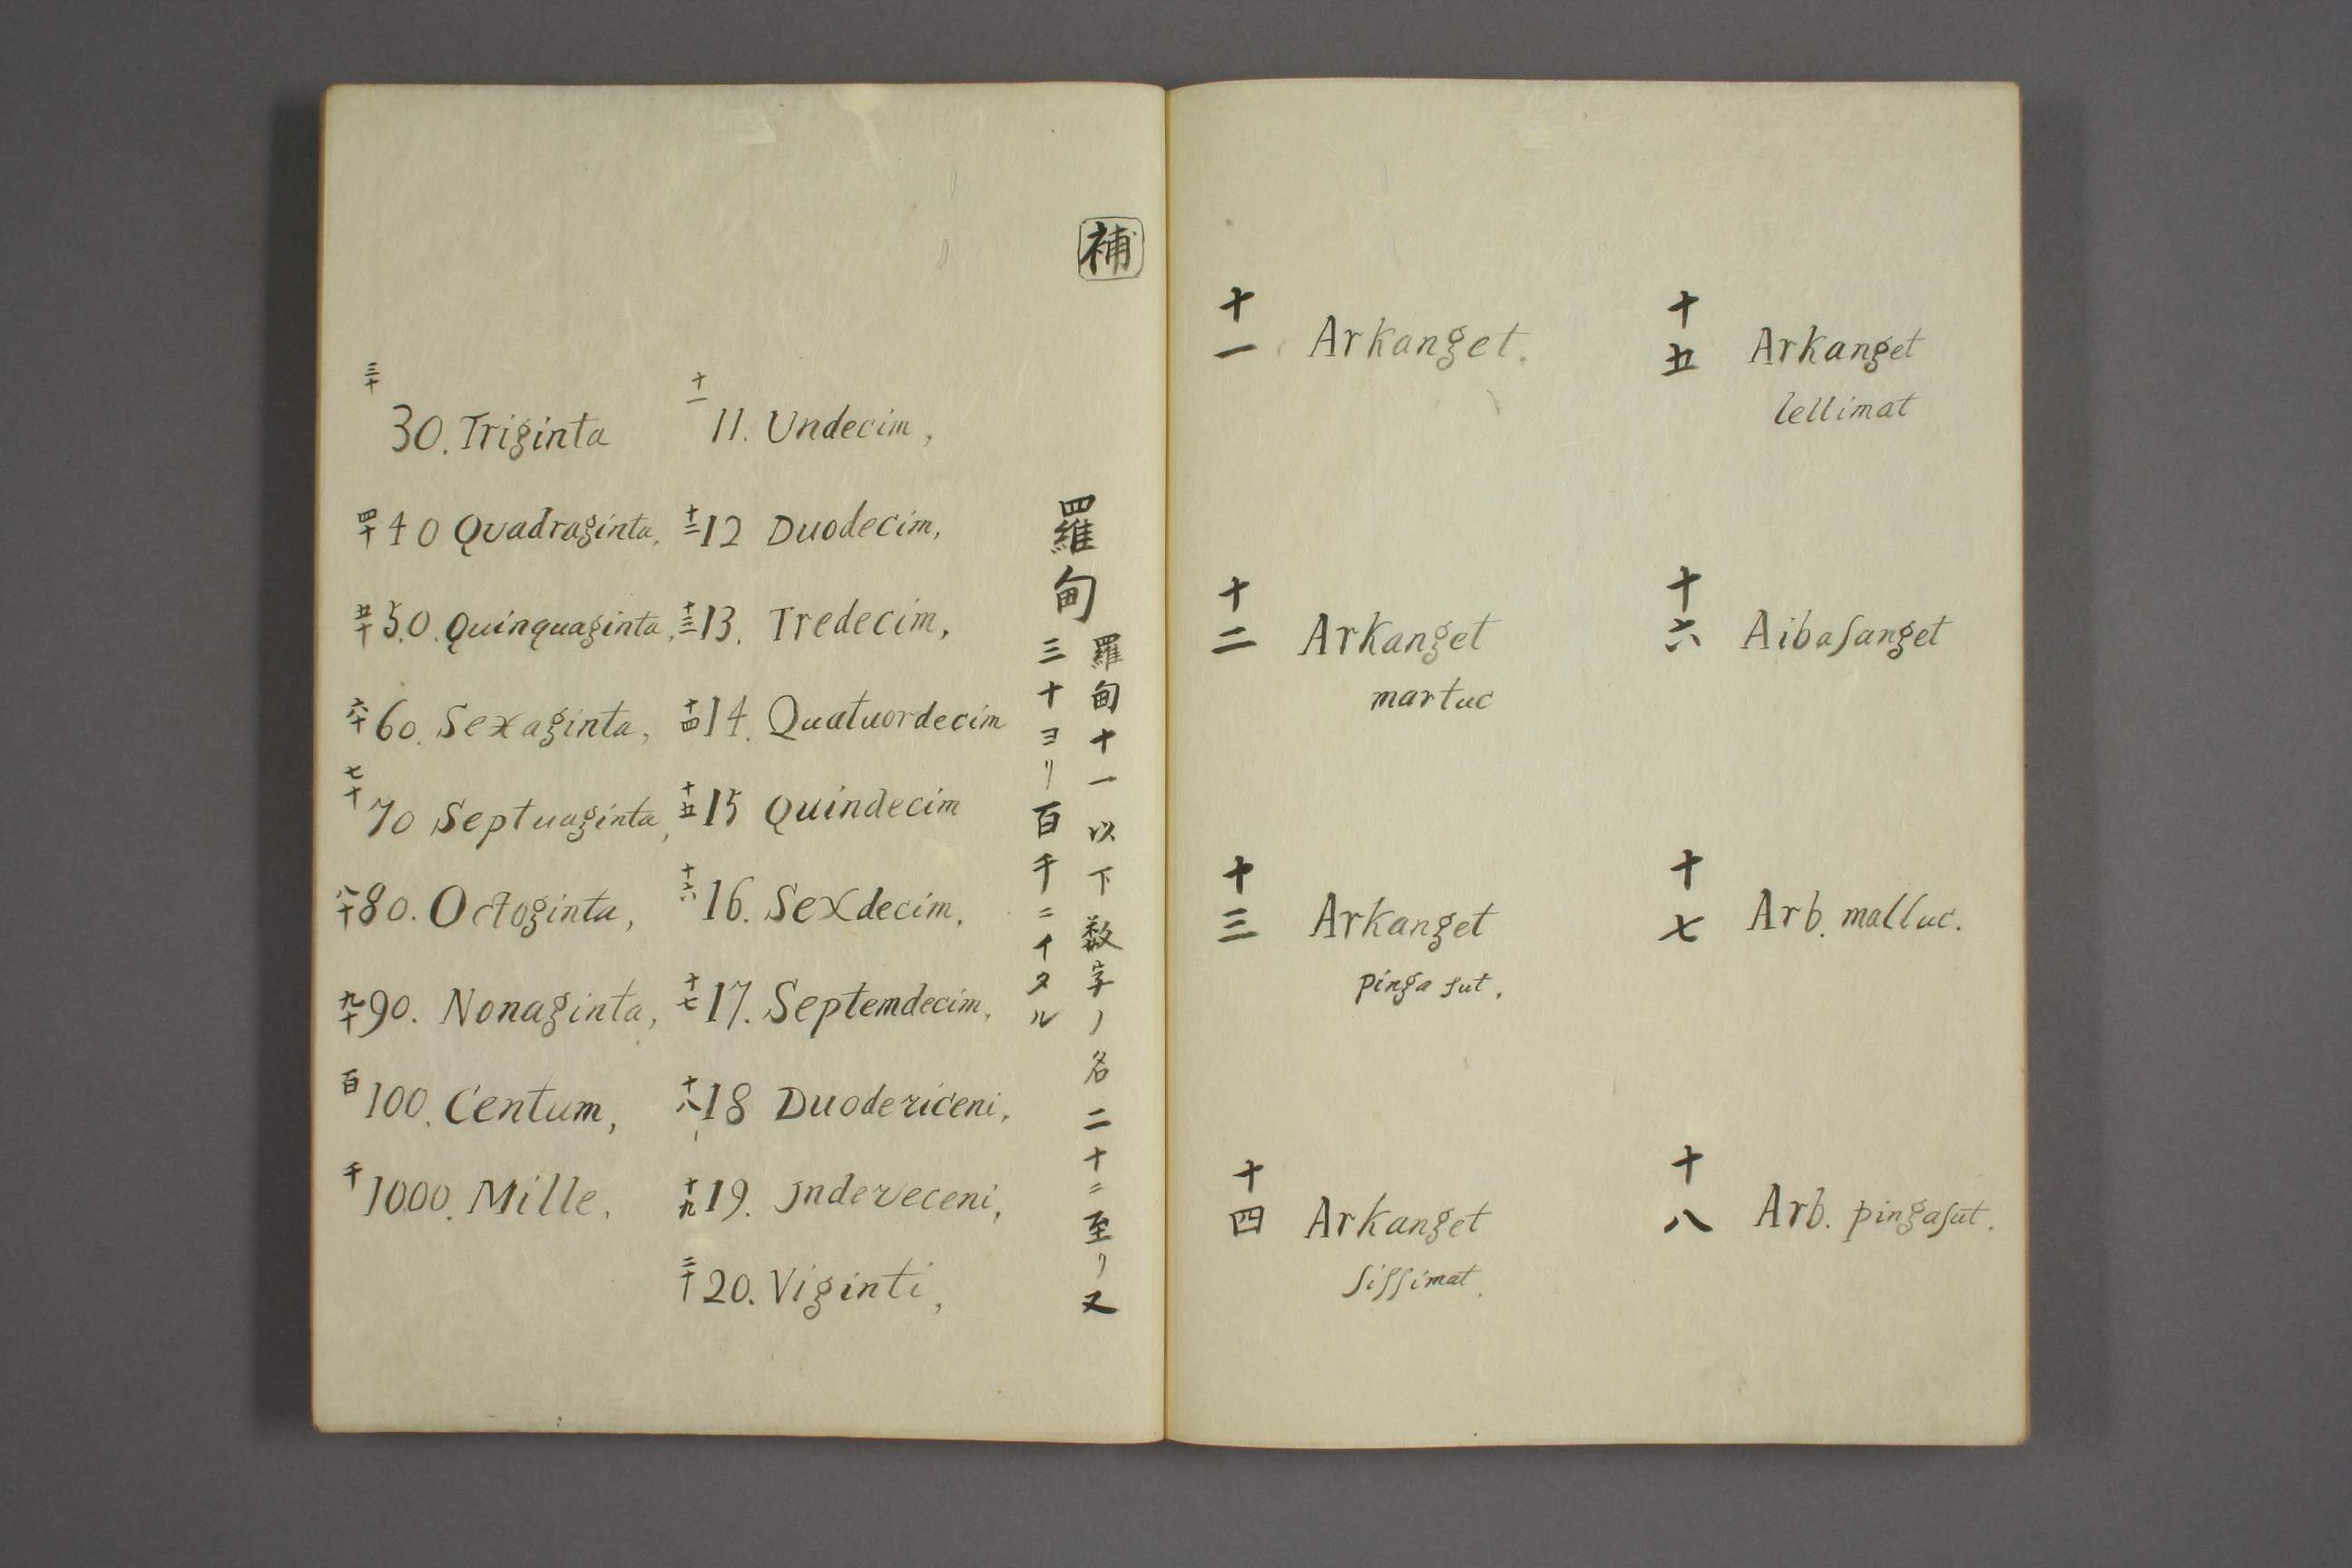 十一 Arkanget.
十二 Arkanget
martuc
十三 Arkanget
pinga sut.
十四 Arkanget
siſsimat.
十五 Arkanget
lellimat
十六 Aibaſanget
十七 Arb. malluc.
十八 Arb. pingaſut.
補
羅甸
羅甸十一以下数字ノ名二十ニ至リ又
三十ヨリ百千ニイタル
十一 11. Undecim,
十二 12 Duodecim,
十三 13. Tredecim,
十四 14. Quatuordecim
十五 15 Quindecim
十六 16. Sexdecim,
十七 17. Septemdecim,
十八 18 Duodericeni,
十九 19. Jndereceni,
二十 20. Viginti,
三十 30. Triginta
四十 40 Quadraginta,
五十 50. Quinquaginta,
六十 60. Sexaginta,
七十 70 Septuaginta,
八十 80. Octoginta,
九十 90. Nonaginta,
百 100. Centum,
千 1000. Mille.